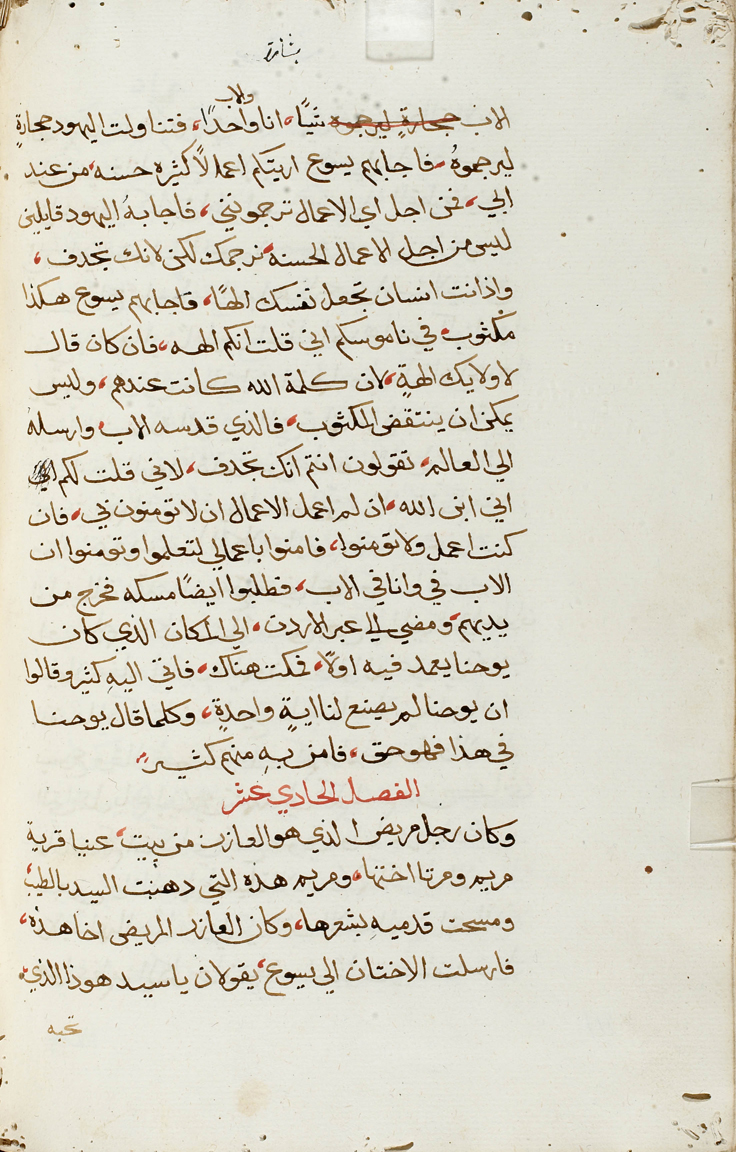 بشارة
والاب
الاب حجارةٍ ليرجموه شيًّا، انا واحدًا، فتناولت اليهود حجارةٍ
ليرجموهُ، فاجابهم يسوع اريتكم اعمالاً كثيره حسنه، من عند
ابي، فمن اجل اي الاعمال ترجمونني، فاجابهُ اليهود قايلين
لليس من اجل الاعمال الحسنه نرجمك لكن لانك تجدف،
واذ انت انسان تجعل نفسك الهًا، فاجابهم يسوع هكذا
مكثوب في ناموسكم اني قلت انكم الهه، فان كان قال
لاولايك الهةٍ، لان كلمة الله كانت عندهم، وليس
يمكن ان ينتقض المكثوب، فالذي قدسه الاب وارسلهُ
الي العالم، تقولون انتم انك تجدف، لاني قلت لكم
اني ابن الله، ان لم اعمل الاعمال ان لا تومنون بي، فان
كنت اعمل ولا تومنوا، فامنوا باعمالي لتعلموا وتومنوا ان
الاب فيَ وانا في الاب، فطلبوا ايضًا مسكه فخرج من
يديهم، ومضي الي عبر الاردن، الي المكان الذي كان
يوحنا يعمد فيه اولاً، فمكث هناك، فاتي اليهِ كثير وقالوا
ان يوحنا لم يصنع لنا ايةٍ واحدةٍ، وكلما قال يوحنا
في هذا فهو حق، فامن بهِ منهم كثير
الفصل الحادي عشر
وكان رجل مريض الذي هو العازر من بيت، عنيا قرية
مريم ومرتا اختها، ومريم هذه التي دهنت السيد بالطيب
ومسحت قدميهِ بشعرها، وكان العازر المريض اخا هذه،
فارسلت الاختان الي يسوع، يقولان يا سيد هوذا الذي
تحبه